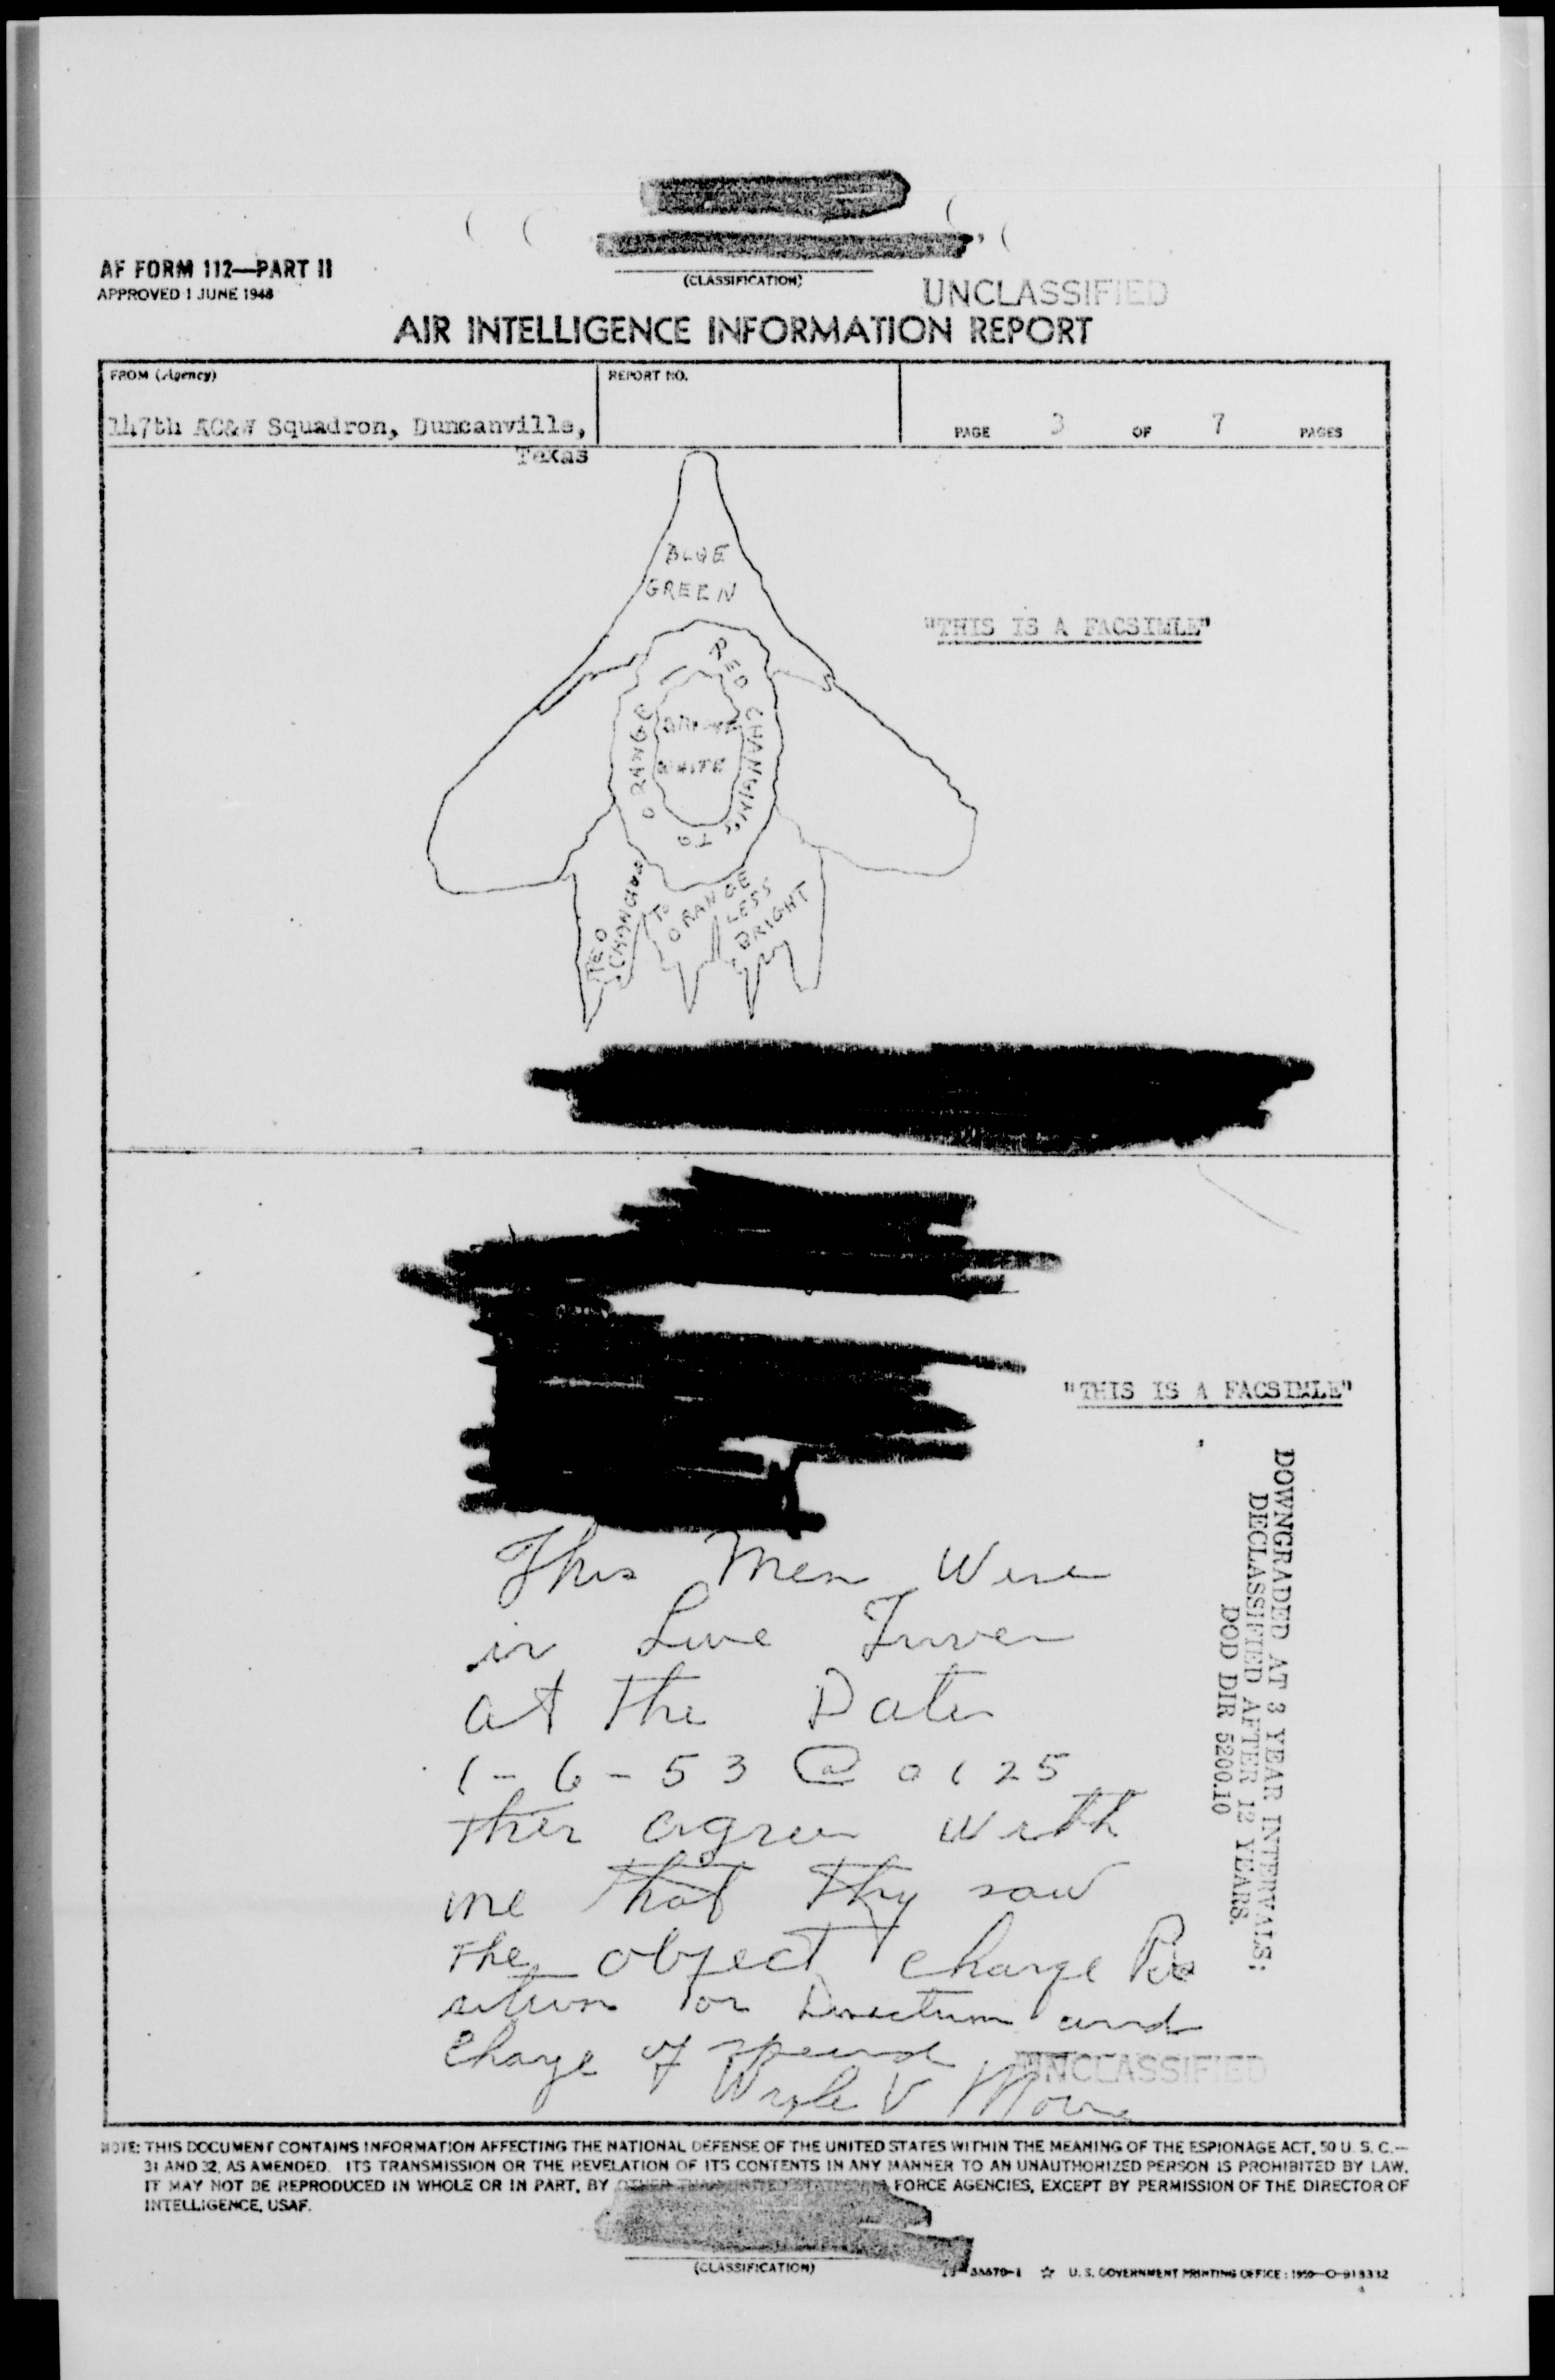 AF FORM 112—PART II
APPROVED 1 JUNE 1948
(CLASSIFICATION)
UNCLASSIFIED
AIR INTELLIGENCE INFORMATION REPORT
FROM (Agency)
147th AC&W Squadron, Duncanville,
Texas
REPORT NO.
PAGE 3 OF 7 PAGES
BLUE
GREEN
"THIS IS A FACSIMLE"
RED CHANGING TO ORANGE
WHITE
RED
CHANGING
TO
ORANGE
LESS
BRIGHT
"THIS IS A FACSIMLE"
DOWNGRADED AT 3 YEAR INTERVALS:
DECLASSIFIED AFTER 12 YEARS.
DOD DIR 5200.10
This Men Were
in
at the Date
1-6-53 @ 0125
agree with
me that thy saw
the object change Po
sition or Direction and
change of speed
V
UNCLASSIFIED
NOTE: THIS DOCUMENT CONTAINS INFORMATION AFFECTING THE NATIONAL DEFENSE OF THE UNITED STATES WITHIN THE MEANING OF THE ESPIONAGE ACT, 50 U. S. C.—
31 AND 32, AS AMENDED. ITS TRANSMISSION OR THE REVELATION OF ITS CONTENTS IN ANY MANNER TO AN UNAUTHORIZED PERSON IS PROHIBITED BY LAW.
IT MAY NOT BE REPRODUCED IN WHOLE OR IN PART, BY OTHER THAN UNITED STATES FORCE AGENCIES, EXCEPT BY PERMISSION OF THE DIRECTOR OF
INTELLIGENCE, USAF.
(CLASSIFICATION)
☆ U. S. GOVERNMENT PRINTING OFFICE: 1950—O-918332